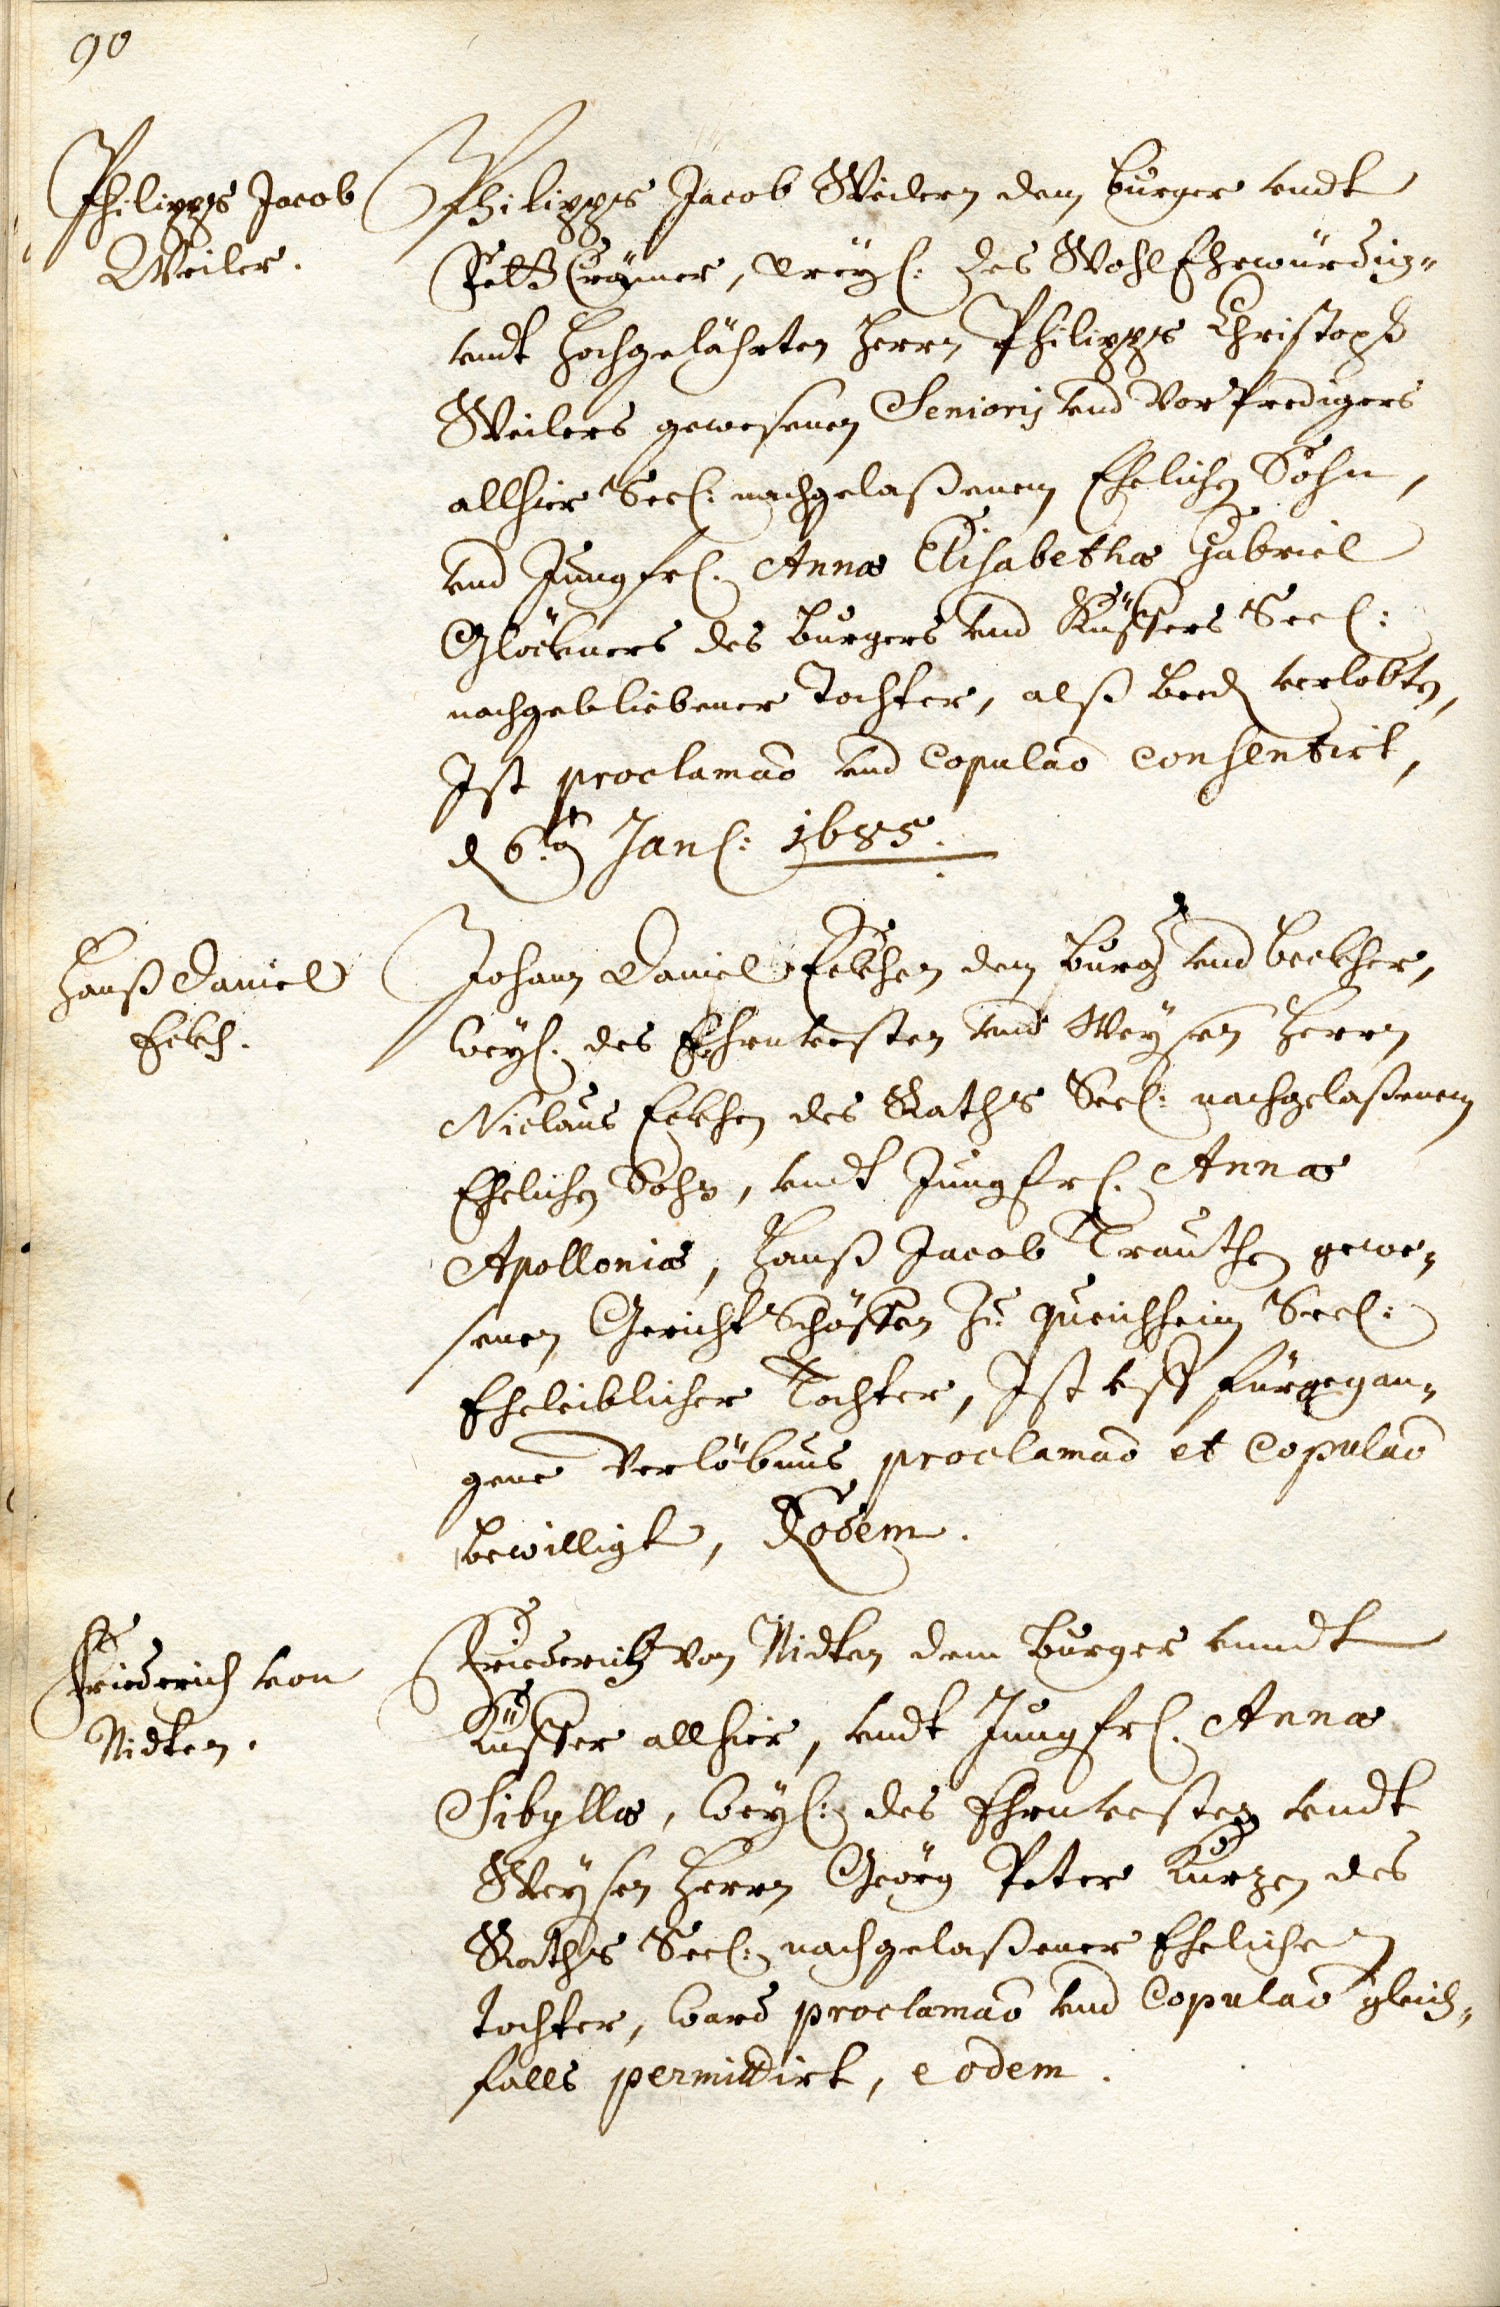 90
Philipps Jacob
Weiler.
Philipps Jacob Weilern dem burger undt
Crämer, weyl: des WohlEhrwürdig-
undt Hochgelährten Herrn Philipps Christoph
Weilers gewesenen Senioris und Vor Predigers
allhier Seel: nachgelaßenem Ehelichen Sohn,
und Jungfrl. Annæ Elisabethæ Gabriel
Glöckners des burgers und Küffers Seel:
nachgebliebener Tochter, alß beed verlobten,
Ist proclamao und Copulao consentirt,
d 6.ten Janl: 1685.
Hanß Daniel
Eckh.
Johann Daniel Eckhen dem burg und beckher,
weyl. des Ehrnvesten und Weysen Herrn
Niclaus Eckhen des Raths Seel: nachgelaßenem
Ehelichen Sohn, undt Jungfrl. Annæ
Apolloniæ, Hanß Jacob Trauthen gewe-
senen Gericht Schöffen zu Queichheim Seel:
Eheleiblicher Tochter, Ist uff fürgegan-
gene Verlöbnus proclamao et Copulao
bewilligt, Eodem.
Friederich von
Nidten.
Friederich von Nidten dem burger unndt
Küffer allhier, undt Jungfrl. Annæ
Sibyllæ, weyl: des Ehrnvesten undt
Weysen Herrn Geörg Peter Kurzen des
Raths Seel: nachgelaßener Ehelichen
Tochter, ward proclamao und Copulao gleich-
falls permittirt, eodem.